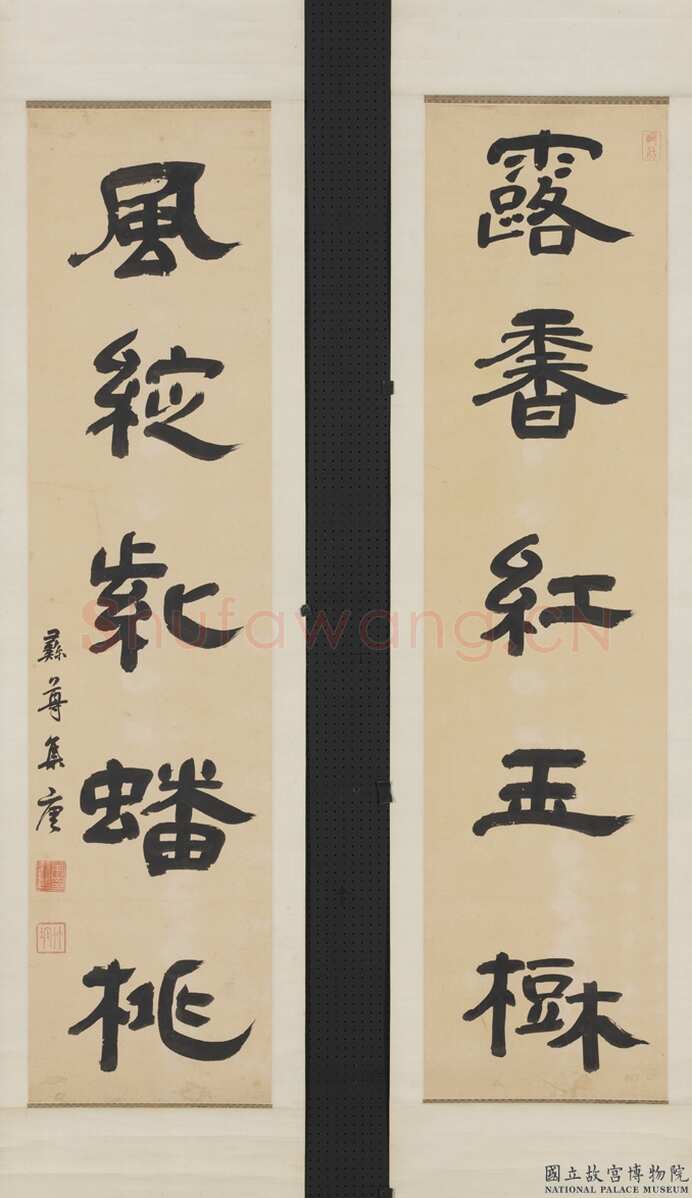 露香紅玉樹
風綻紫蟠桃
彝尊集唐
Shufawang.CN
國立故宮博物院
NATIONAL PALACE MUSEUM